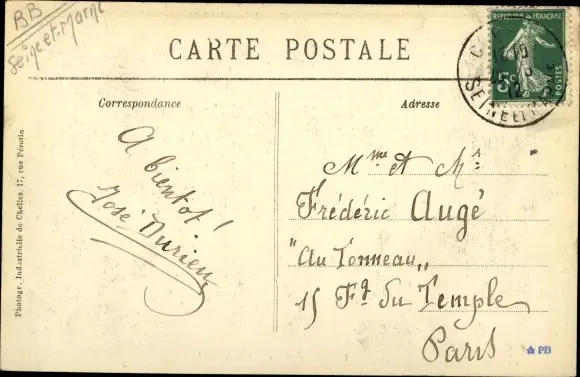 BB
Seine-et-Marne
CARTE POSTALE
REPUBLIQUE FRANÇAISE
5c
POSTES
SEINE ET
12
Correspondance
Adresse
A bientot!
José Durieu
Mme et Mr
Frédéric Augé
"Au Tonneau"
15 Fg du Temple
Paris
Photogr. Industrielle de Chelles, 17, rue Pérotin
PB